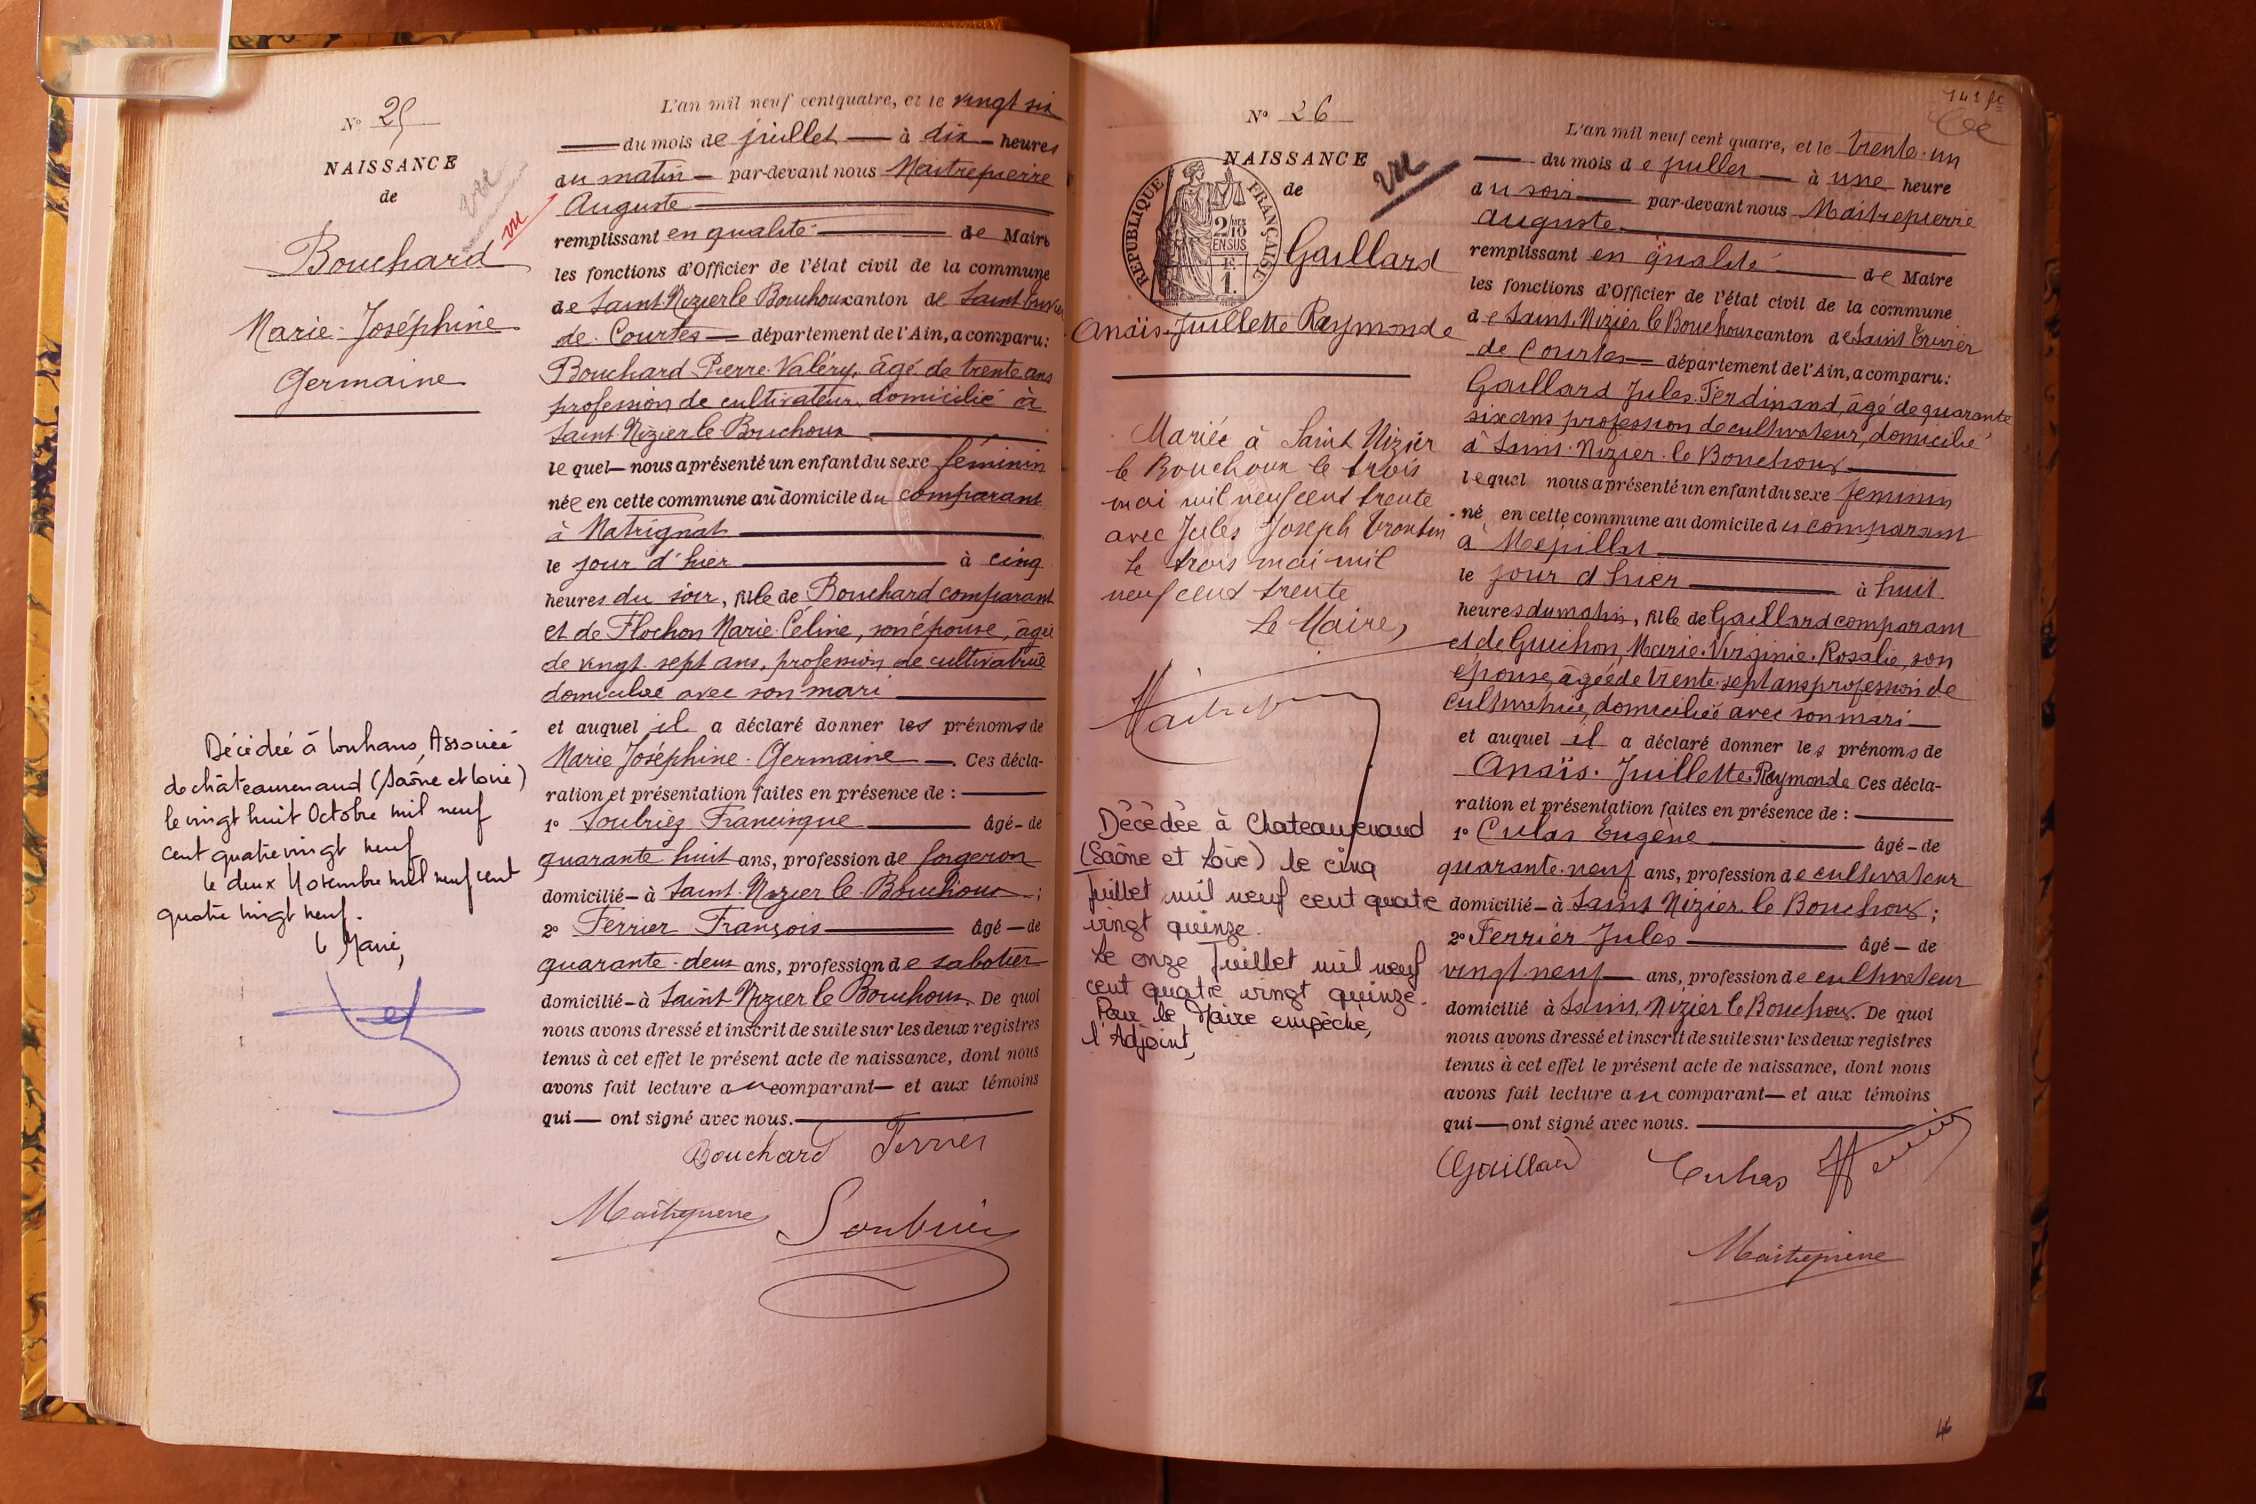 Nº 25
NAISSANCE
de
vu
vu
Bouchard
Marie-Joséphine
Germaine
Décédée à Louhans, Associée
de châteaurenaud (Saône et Loire)
le vingt huit Octobre mil neuf
cent quatre vingt neuf
le deux Novembre mil neuf cent
quatre vingt neuf.
le Maire,
L'an mil neuf cent quatre, et le vingt six
du mois de juillet à dix heures
du matin par-devant nous Maitrepierre
Auguste
remplissant en qualité de Maire
les fonctions d'Officier de l'état civil de la commune
de Saint Nizier le Bouchoux canton de Saint Trivier
de Courtes département de l'Ain, a comparu :
Bouchard Pierre Valéry, âgé de trente ans
profession de cultivateur, domicilié à
Saint Nizier le Bouchoux
lequel nous a présenté un enfant du sexe féminin
née en cette commune au domicile du comparant
à Matrignat
le jour d'hier à cinq
heures du soir, fille de Bouchard comparant
et de Flochon Marie Céline, son épouse, âgée
de vingt sept ans, profession de cultivatrice
domiciliée avec son mari
et auquel il a déclaré donner les prénoms de
Marie Joséphine Germaine Ces décla-
ration et présentation faites en présence de :
1º Soubriez Francisque âgé de
quarante huit ans, profession de forgeron
domicilié à Saint Nizier le Bouchoux ;
2º Ferrier François âgé de
quarante deux ans, profession de sabotier
domicilié à Saint Nizier le Bouchoux. De quoi
nous avons dressé et inscrit de suite sur les deux registres
tenus à cet effet le présent acte de naissance, dont nous
avons fait lecture au comparant et aux témoins
qui ont signé avec nous.
Bouchard Ferrier
Maitrepierre Soubriez
Nº 26
NAISSANCE
de
vu
REPUBLIQUE FRANÇAISE
2/10
EN SUS
F.
1.
Gaillard
Anaïs-Juillette Raymonde
Mariée à Saint Nizier
le Bouchoux le trois
mai mil neuf cent trente
avec Jules Joseph
le trois mai mil
neuf cent trente
Le Maire,
Décédée à Chateaurenaud
(Saône et Loire) le cinq
Juillet mil neuf cent quatre
vingt quinze.
Le onze Juillet mil neuf
cent quatre vingt quinze.
Pour le Maire empêché,
l'Adjoint,
L'an mil neuf cent quatre, et le trente-un
du mois de juillet à une heure
du soir par-devant nous Maitrepierre
Auguste
remplissant en qualité de Maire
les fonctions d'Officier de l'état civil de la commune
de Saint Nizier le Bouchoux canton de Saint Trivier
de Courtes département de l'Ain, a comparu :
Gaillard Jules Ferdinand, âgé de quarante
six ans profession de cultivateur, domicilié
à Saint-Nizier le Bouchoux
lequel nous a présenté un enfant du sexe feminin
né en cette commune au domicile du comparant
à Mépillat
le jour d'hier à huit
heures du matin, fille de Gaillard comparant
et de Guichon, Marie-Virginie-Rosalie, son
épouse, âgée de trente-sept ans profession de
cultivatrice, domiciliée avec son mari
et auquel il a déclaré donner les prénoms de
Anaïs-Juillette-Raymonde Ces décla-
ration et présentation faites en présence de :
1º Culas Eugène âgé de
quarante-neuf ans, profession de cultivateur
domicilié à Saint Nizier le Bouchoux ;
2º Ferrier Jules âgé de
vingt neuf ans, profession de cultivateur
domicilié à Saint Nizier le Bouchoux. De quoi
nous avons dressé et inscrit de suite sur les deux registres
tenus à cet effet le présent acte de naissance, dont nous
avons fait lecture au comparant et aux témoins
qui ont signé avec nous.
Gaillard Culas
Maitrepierre
46